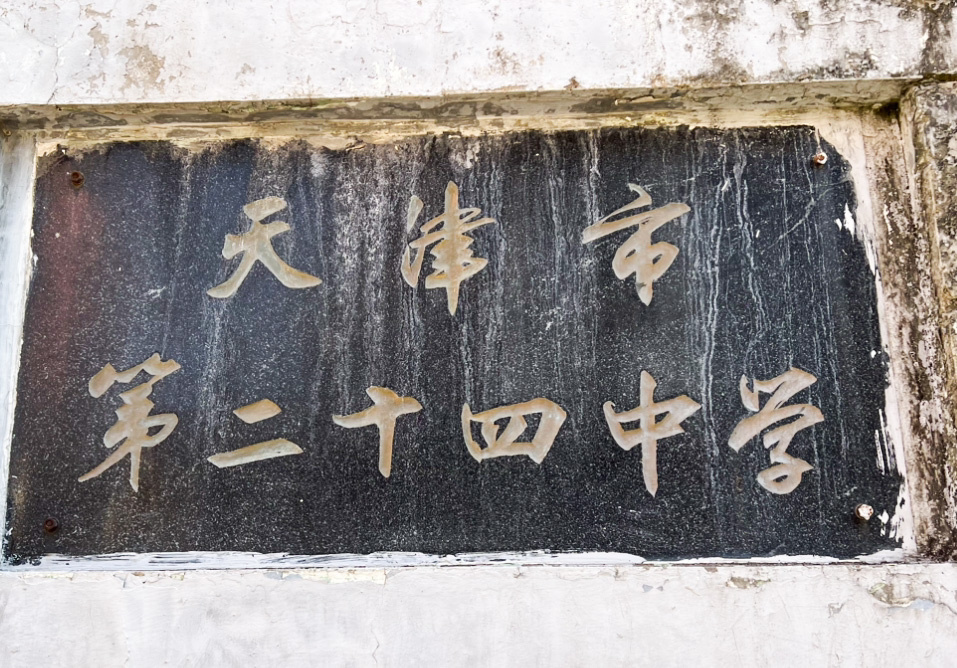 天津市
第二十四中学